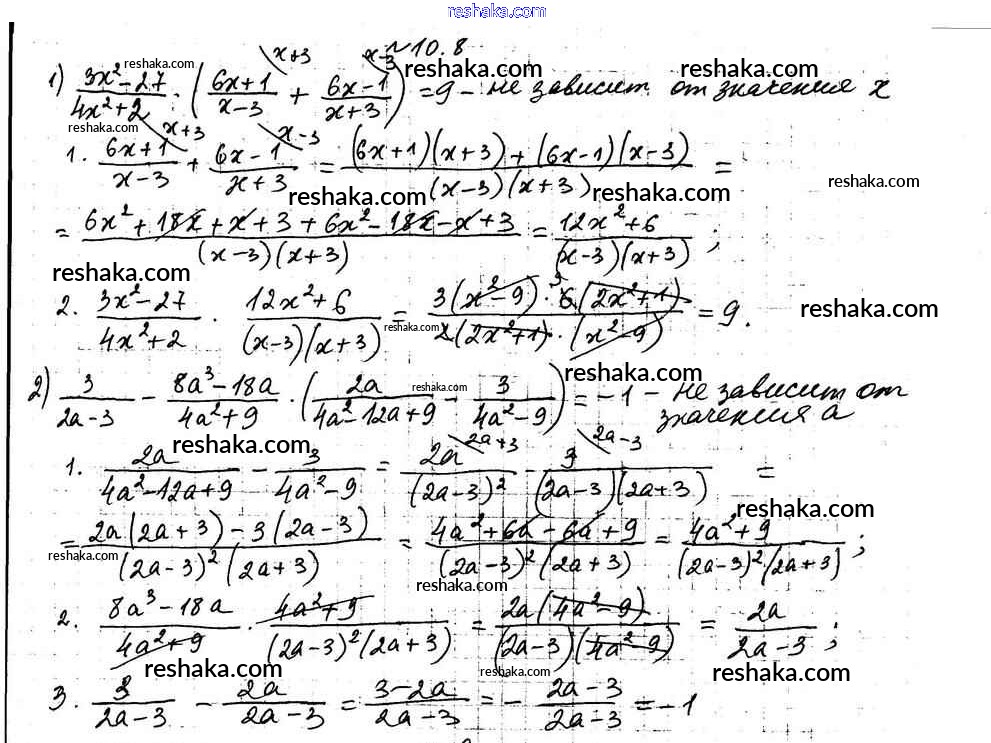 reshaka.com
№10.8
1) (3x²-27)/(4x²+2) · ((6x+1)/(x-3) + (6x-1)/(x+3)) = 9 - не зависит от значения x
x+3 x-3
reshaka.com reshaka.com reshaka.com
reshaka.com x+3 x-3
1. (6x+1)/(x-3) + (6x-1)/(x+3) = ((6x+1)(x+3)+(6x-1)(x-3))/((x-3)(x+3)) =
reshaka.com reshaka.com
= (6x²+18x+x+3+6x²-18x-x+3)/((x-3)(x+3)) = (12x²+6)/((x-3)(x+3));
reshaka.com
2. (3x²-27)/(4x²+2) · (12x²+6)/((x-3)(x+3)) = (3(x²-9)·6(2x²+1))/(2(2x²+1)·(x²-9)) = 9.
3
reshaka.com reshaka.com
reshaka.com
2) 3/(2a-3) - (8a³-18a)/(4a²+9) · (2a/(4a²-12a+9) - 3/(4a²-9)) = -1 - не зависит от
значения a
reshaka.com reshaka.com
2a+3 2a-3
1. 2a/(4a²-12a+9) - 3/(4a²-9) = 2a/(2a-3)² - 3/((2a-3)(2a+3)) =
reshaka.com
= (2a(2a+3)-3(2a-3))/((2a-3)²(2a+3)) = (4a²+6a-6a+9)/((2a-3)²(2a+3)) = (4a²+9)/((2a-3)²·(2a+3));
reshaka.com reshaka.com
2. (8a³-18a)/(4a²+9) · (4a²+9)/((2a-3)²(2a+3)) = (2a(4a²-9))/((2a-3)(4a²-9)) = 2a/(2a-3);
reshaka.com reshaka.com reshaka.com
3. 3/(2a-3) - 2a/(2a-3) = (3-2a)/(2a-3) = -(2a-3)/(2a-3) = -1